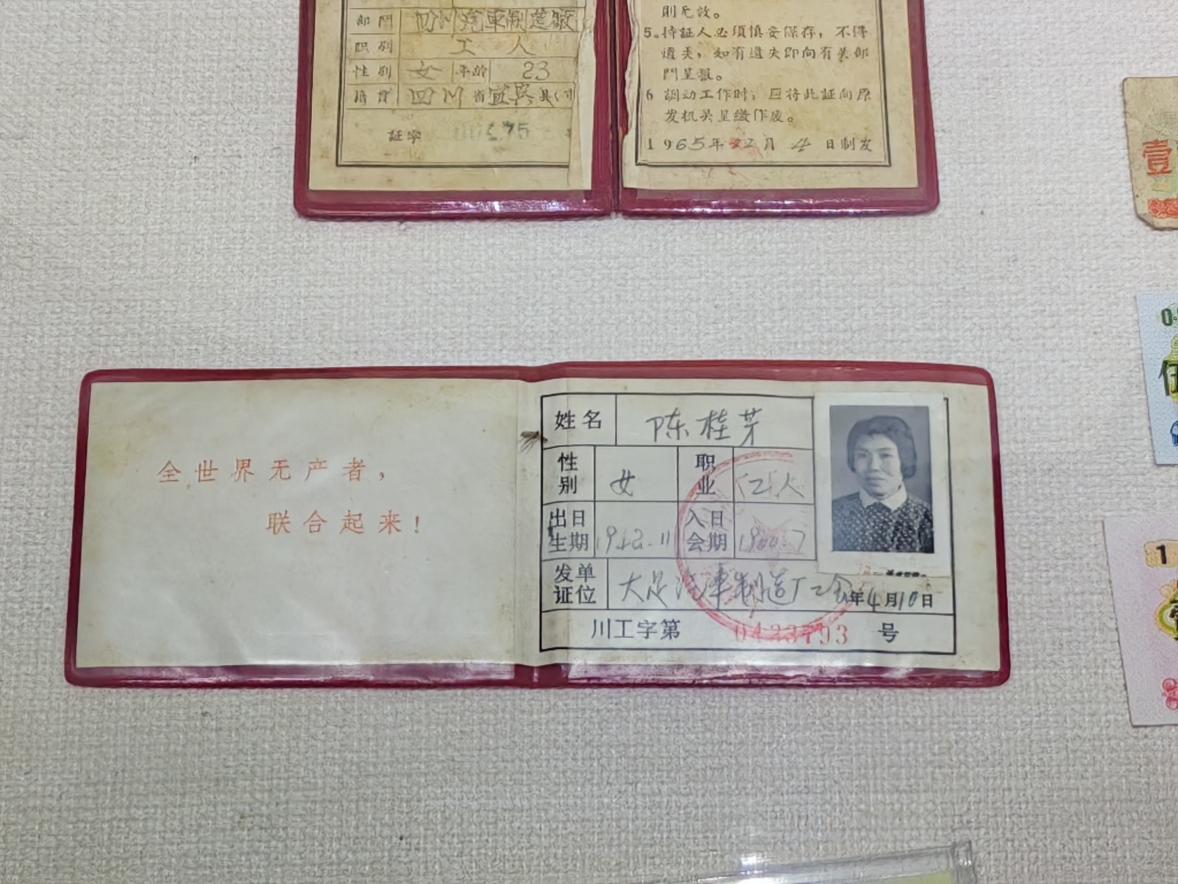 部門 四川汽車制造廠
职别 工人
性别 女 年龄 23
籍贯 四川省宜宾县
証字
則无效。
5。持証人必須慎妥保存，不得
遺失，如有遺失即向有关部
門呈报。
6 調动工作时，应将此証向原
发机关呈缴作废。
1965年12月4日制发
壹
全世界无产者，
联合起来！
姓名 陈桂芽
性别 女 职业 工人
出生日期 1942.11 入会日期
发证单位 大足汽车制造厂工会
年4月10日
川工字第 0433793 号
伍
1